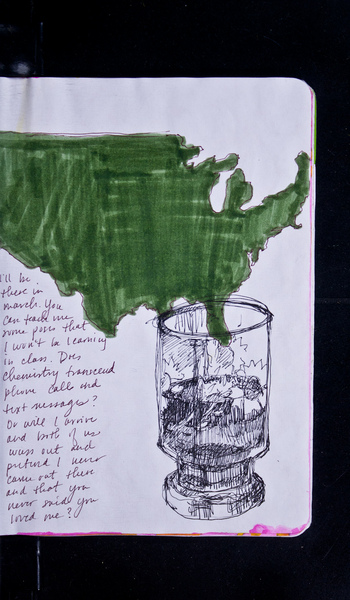 I'll be
there in
march. You
can teach me
some poses that
I won't be learning
in class. Does
chemistry transcend
phone calls and
text messages?
Or will I arrive
and both of us
wuss out and
pretend I never
came out there
and that you
never said you
loved me?